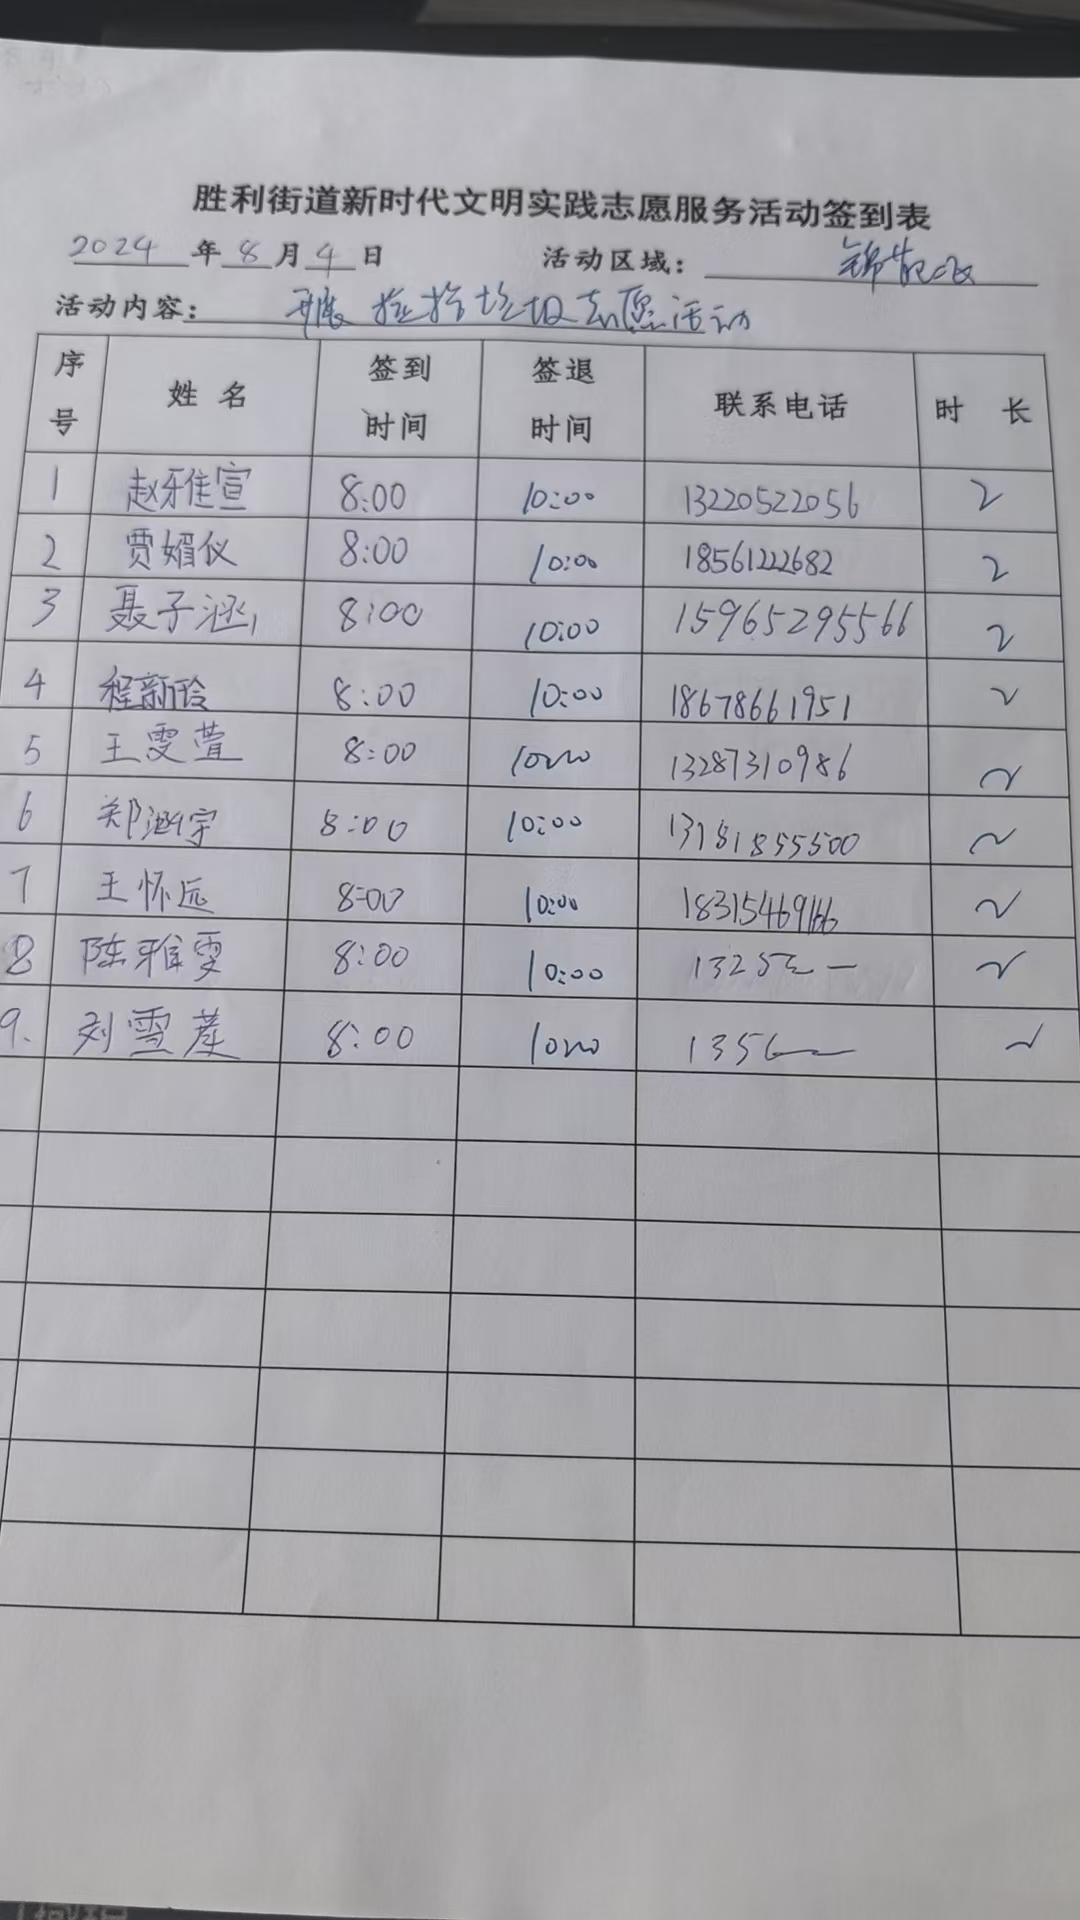 胜利街道新时代文明实践志愿服务活动签到表
2024 年 8 月 4 日 活动区域: 锦苑二区
活动内容: 开展 捡拾垃圾志愿活动
序号 姓名 签到时间 签退时间 联系电话 时长
1 赵雅萱 8:00 10:00 13220522056 2
2 贾媚仪 8:00 10:00 18561222682 2
3 聂子涵 8:00 10:00 15965295566 2
4 程新玲 8:00 10:00 18678661951 2
5 王雯萱 8:00 10:00 13287310986 2
6 郑涵宇 8:00 10:00 13781855500 2
7 王怀远 8:00 10:00 18315469166 2
8 陈雅雯 8:00 10:00 1325 2
9. 刘雪 8:00 10:00 1356 2